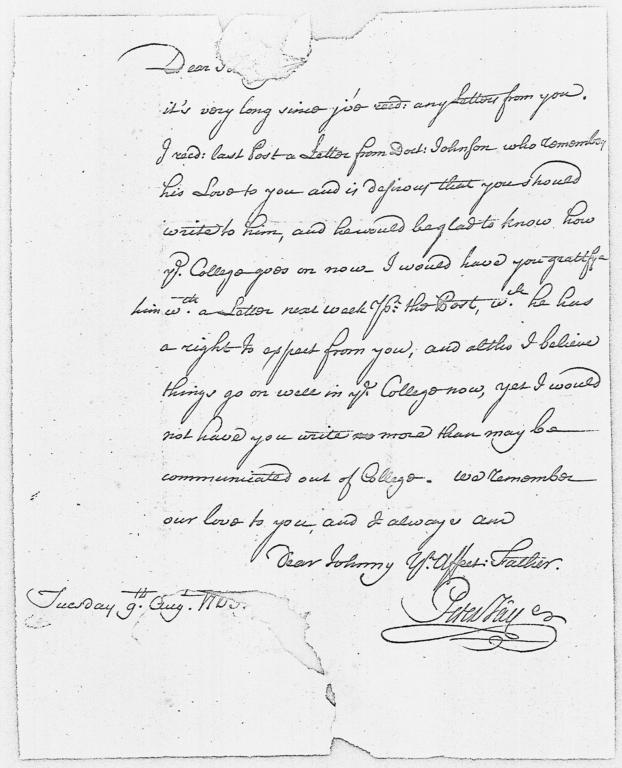 Dear
it's very long since j've recd: any Letters from you.
I recd: last Post a Letter from Doct: Johnson who remembers
his Love to you and is desirous that you should
write to him, and he would be glad to know how
yr. College goes on now - I would have you gratifye
him wth. a Letter next week pr: the Post, wch. he has
a right to expect from you; and altho I believe
things go on well in yr. College now, yet I would
not have you write no more than may be
communicated out of College. we remember
our love to you, and I always am
Dear Johnny Yr. Affect: Father.
Peter Jay
Tuesday 9th. Augt.